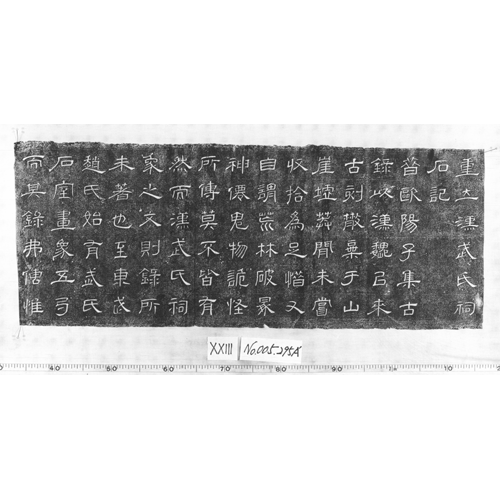 重立漢武氏祠
石記
昔歐陽子集古
錄以漢魏㠯來
古刻散棄于山
崖墟莽閒未嘗
收拾為足惜又
自謂荒林破冢
神僊鬼物詭怪
所傳莫不皆有
然而漢武氏祠
象之文則錄所
未著也至東武
趙氏始有武氏
石室畫象五弓
而其錄弗惟
XXIII
No.005.295A
40 50 60 70 80 90 10